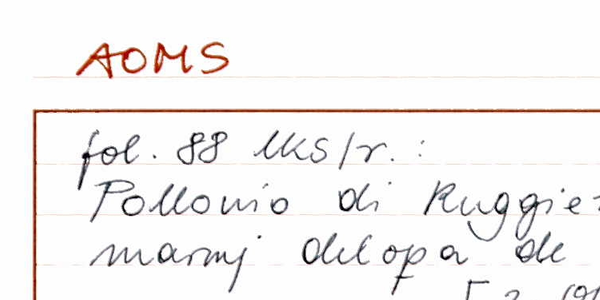 AOMS
fol. 88 lks/r. :
Pollonio di Ruggie
marmj delopa de